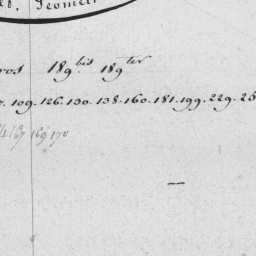 Géomét
ros 189bis 189ter
109. 126. 130. 138. 160. 181. 199. 229. 25
167 169 170